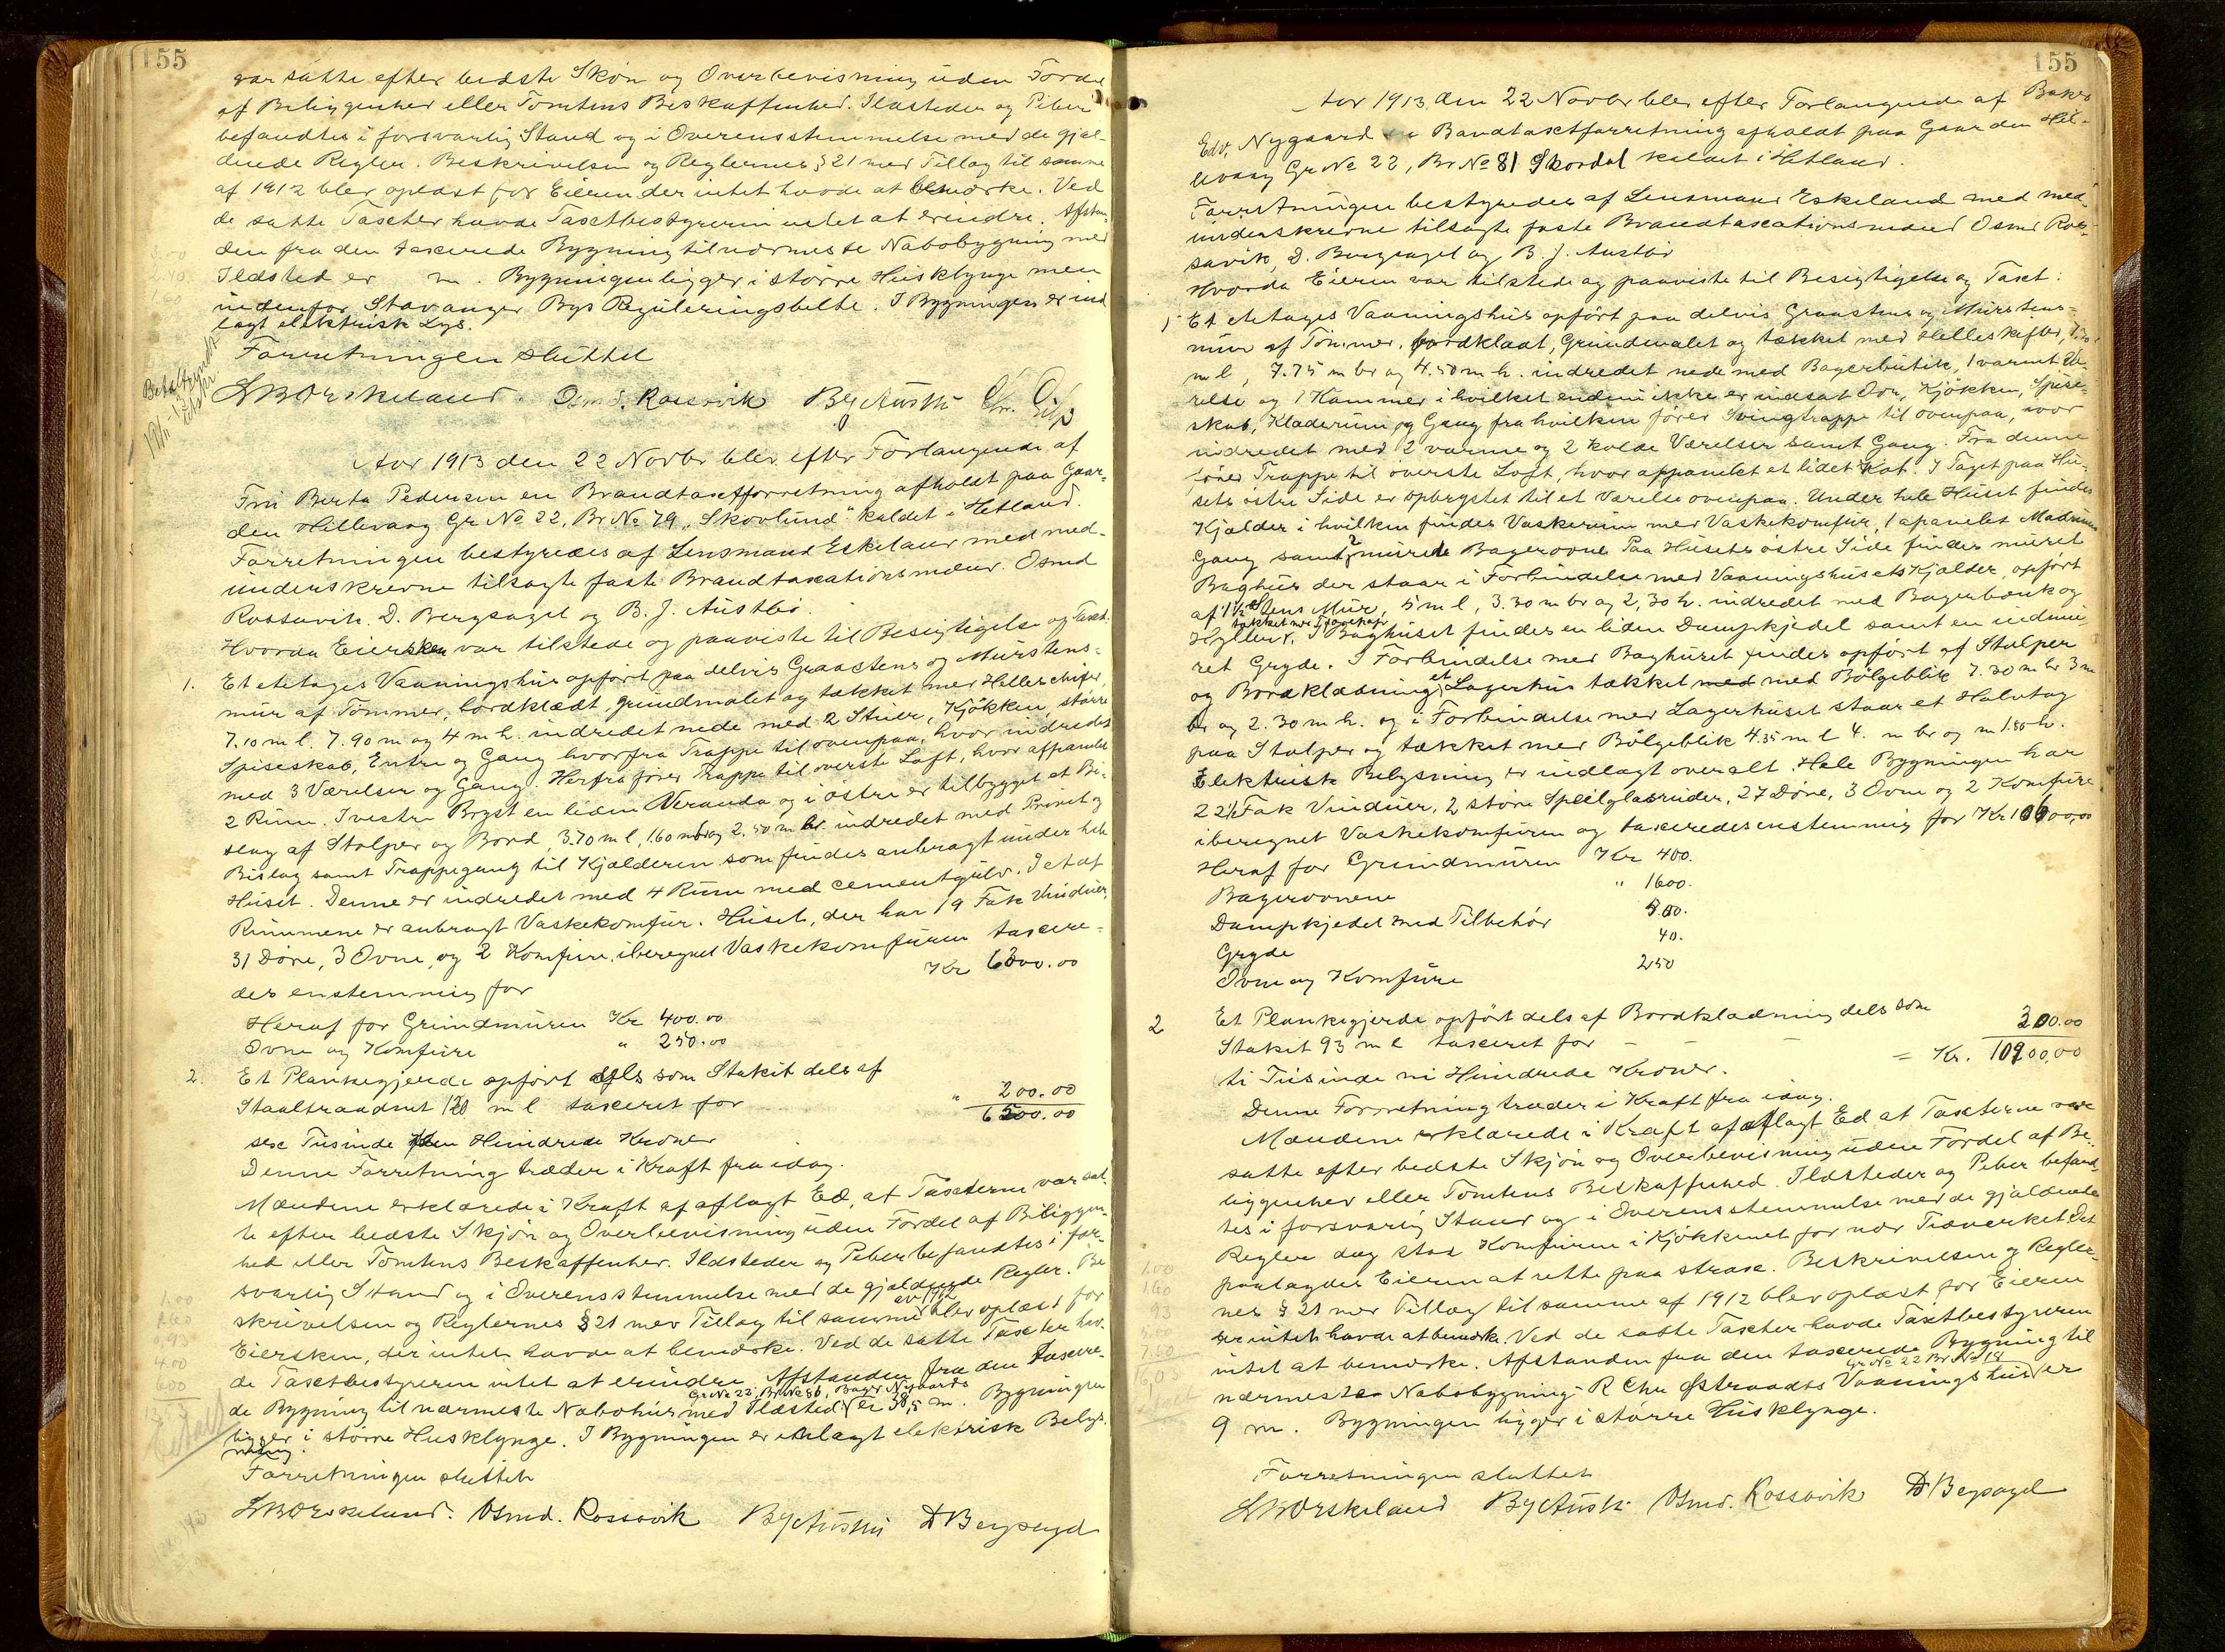 155
var satte efter bedste Skjön og Overbevisning uden Fordel
af Beliggenhed eller Tomtens Beskaffenhed. Ildsteder og Piber
befandtes i forsvarlig Stand og i Overensstemmelse med de gjæl-
dende Regler. Beskrivelsen og Reglernes § 21 med Tillæg til samme
af 1912 blev oplæst for Eieren der intet havde at bemærke. Ved
de satte Taxter havde Taxtbestyreren intet at erindre. Afstan-
den fra den taxerede Bygning til nærmeste Nabobygning med
Ildsted er m. Bygningen ligger i större Husklynge men
indenfor Stavanger Bys Reguleringsbelte. I Bygningen er ind
lagt elektrisk Lys.
Forretningen sluttet
Osmd. Rossavik
Aar 1913 den 22 Novbr blev efter Forlangende af
Fru Berta Pedersen en Brandtaxtforretning afholdt paa Gaar-
den Hillevaag Gr No 22, Br No 79 "Skovlund" kaldet i Hetland.
Forretningen bestyredes af Lensmand Eskeland med med-
underskrevne tilsagte faste Brandtaxationsmænd Osmd
Rossavik, D. Bergsagel og B. J. Austbö.
Hvorda Eiersken var tilstede og paaviste til Besigtigelse og Taxt.
1. Et etetages Vaaningshus opfört paa delvis Graastens og Murstens-
mur af Tömmer, bordklædt, grundmalet og tækket med Helleskifer,
7.10 m l. 7.90 m og 4 m h. indredet nede med 2 Stuer, Kjökken, större
Spiseskab, Entre og Gang hvorfra Trappe til ovenpaa, hvor indredet
med 3 Værelser og Gang. Herfra förer Trappe til överste Loft, hvor afpanelet
2 Rum. I vestre Bryst en liden Veranda og i östre er tilbygget et Bi-
slag af Stolper og Bord, 3.70 m l, 1.60 m br og 2.50 m h indredet med Privet og
Bislag samt Trappegang til Kjælderen som findes anbragt under hele
Huset. Denne er indredet med 4 Rum med cementgulv. I et af
Rummene er anbragt Vaskekomfur. Huset, der har 19 Fak Vinduer,
31 Döre, 3 Ovne, og 2 Komfure, iberegnet Vaskekomfuren taxere-
des enstemmig for Kr 6300.00
Heraf for Grundmuren Kr 400.00
Ovne og Komfure " 250.00
2. Et Plankegjerde opfört dels som Stakit dels af
Staaltraadnet 120 m l taxeret for " 200.00
6500.00
sex Tusinde fem Hundrede Kroner
Denne Forretning træder i Kraft fra idag.
Mændene erklærede i Kraft af aflagt Ed, at Taxterne var sat-
te efter bedste Skjön og Overbevisning uden Fordel af Beliggen-
hed eller Tomtens Beskaffenhed. Ildsteder og Piber befandtes i for-
svarlig Stand og i Overensstemmelse med de gjældende Regler. Be
skrivelsen og Reglernes § 21 med Tillæg til samme av 1912 blev oplæst for
Eiersken, der intet havde at bemærke. Ved de satte Taxter hav-
de Taxtbestyreren intet at erindre. Afstanden fra den taxere-
de Bygning til nærmeste Nabohus med Ildsted Gr No 22, Br No 86, Bager Nygaards er 38,5 m. Bygningen
ligger i större Husklynge. I Bygningen er indlagt elektrisk Belys-
ning.
Forretningen sluttet
Osmd. Rossavik D Bergsagel
155
Aar 1913 den 22 Novbr blev efter Forlangende af Baker
Edv. Nygaard en Bandtaxtforretning afholdt paa Gaarden Hil-
levaag Gr No 22, Br No 81 Skordal kaldet i Hetland.
Forretningen bestyredes af Lensmand Eskeland med med-
underskrevne tilsagte faste Brandtaxationsmænd Osmd Ros-
savik, D. Bergsagel og B. J. Austbö
Hvorda Eieren var tilstede og paaviste til Besigtigelse og Taxt:
1 Et etetages Vaaningshus opfört paa delvis Graastens og Murstens-
mur af Tömmer, bordklædt, Grundmalet og tækket med Helleskifer,
m l, 7.75 m br og 4.50 m h. indredet nede med Bagerbutik, 1 varmt Væ-
relse og 1 Kammer i hvilket endnu ikke er indsat Ovn, Kjökken, Spise-
skab, Klæderum og Gang fra hvilken förer Svingtrappe til ovenpaa, hvor
indredet med 2 varme og 2 kolde Værelser samt Gang. Fra denne
förer Trappe til överste Loft, hvor afpanelet et lidet Kot. I Taget paa Hu-
sets östre Side er opbrystet til et Værelse ovenpaa. Under hele Huset findes
Kjælder i hvilken findes Vaskerum med Vaskekomfur, 1 apanelet Madrum
Gang samt 2 murede Bagerovne Paa Husets östre Side findes muret
Baghus der staar i Forbindelse med Vaaningshusets Kjælder, opfört
af 1½ Stens Mur, 5 m l, 3.30 m br og 2,30 h. indredet med Bagerbænk og
Hylder, tækket med I Baghuset findes en liden Dampkjedel samt en indmu-
ret Gryde. I Forbindelse med Baghuset findes opfört af Stolper
og Bordklædning et Lagerhus tækket med med Bölgeblik 7.30 m l 3 m
br og 2.30 m h. og i Forbindelse med Lagerhuset staar et Halvtag
paa Stolper og tækket med Bölgeblik 4.35 m l 4. m br og m 1.80 h.
Elektrisk Belysning er indlagt overalt. Hele Bygningen har
22½ Fak Vinduer, 2 störe Speilglasruder, 27 Döre, 3 Ovne og 2 Komfure
iberegnet Vaskekomfuren og taxeredes enstemmig for Kr 10600,00
Heraf for Grundmuren Kr 400.
Bagerovnene " 1600.
Dampkjedel med Tilbehör 500.
Gryde 40.
Ovne og Komfure 250
2 Et Plankegjerde opfört dels af Bordklædning dels som
Stakit 93 m l taxeret for 300.00
= Kr. 10900,00
ti Tusinde ni Hundrede Kroner.
Denne Forretning træder i Kraft fra idag.
Mændene erklærede i Kraft af aflagt Ed at Taxterne var
satte efter bedste Skjön og Overbevisning uden Fordel af Be-
liggenhed eller Tomtens Beskaffenhed. Ildsteder og Piber befand-
tes i forsvarlig Stand og i Overensstemmelse med de gjældende
Regler dog stod Komfuren i Kjökkenet for nær Træverket. Det
paalagdes Eieren at rette paa strax. Beskrivelsen og Regler-
nes § 21 med Tillæg til samme af 1912 blev oplæst for Eieren
der intet havde at bemærke. Ved de satte Taxter havde Taxtbestyreren
intet at bemærke. Afstanden fra den taxerede Bygning til
nærmeste Nabobygning R Chr Östraadts Gr No 22 Br No 18 Vaaningshus er
9 m. Bygningen ligger i större Husklynge.
Forretningen sluttet
Osmd. Rossavik D Bergsagel